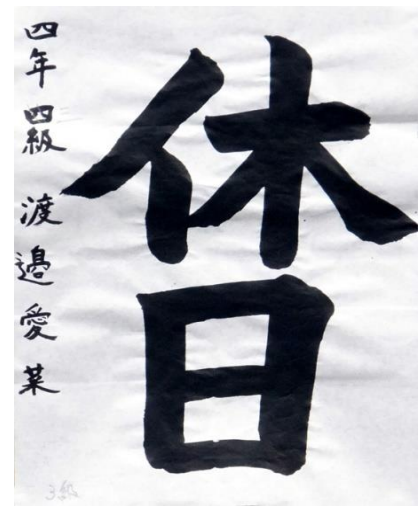 休日
四年 四級 渡邉愛菜
三
3級